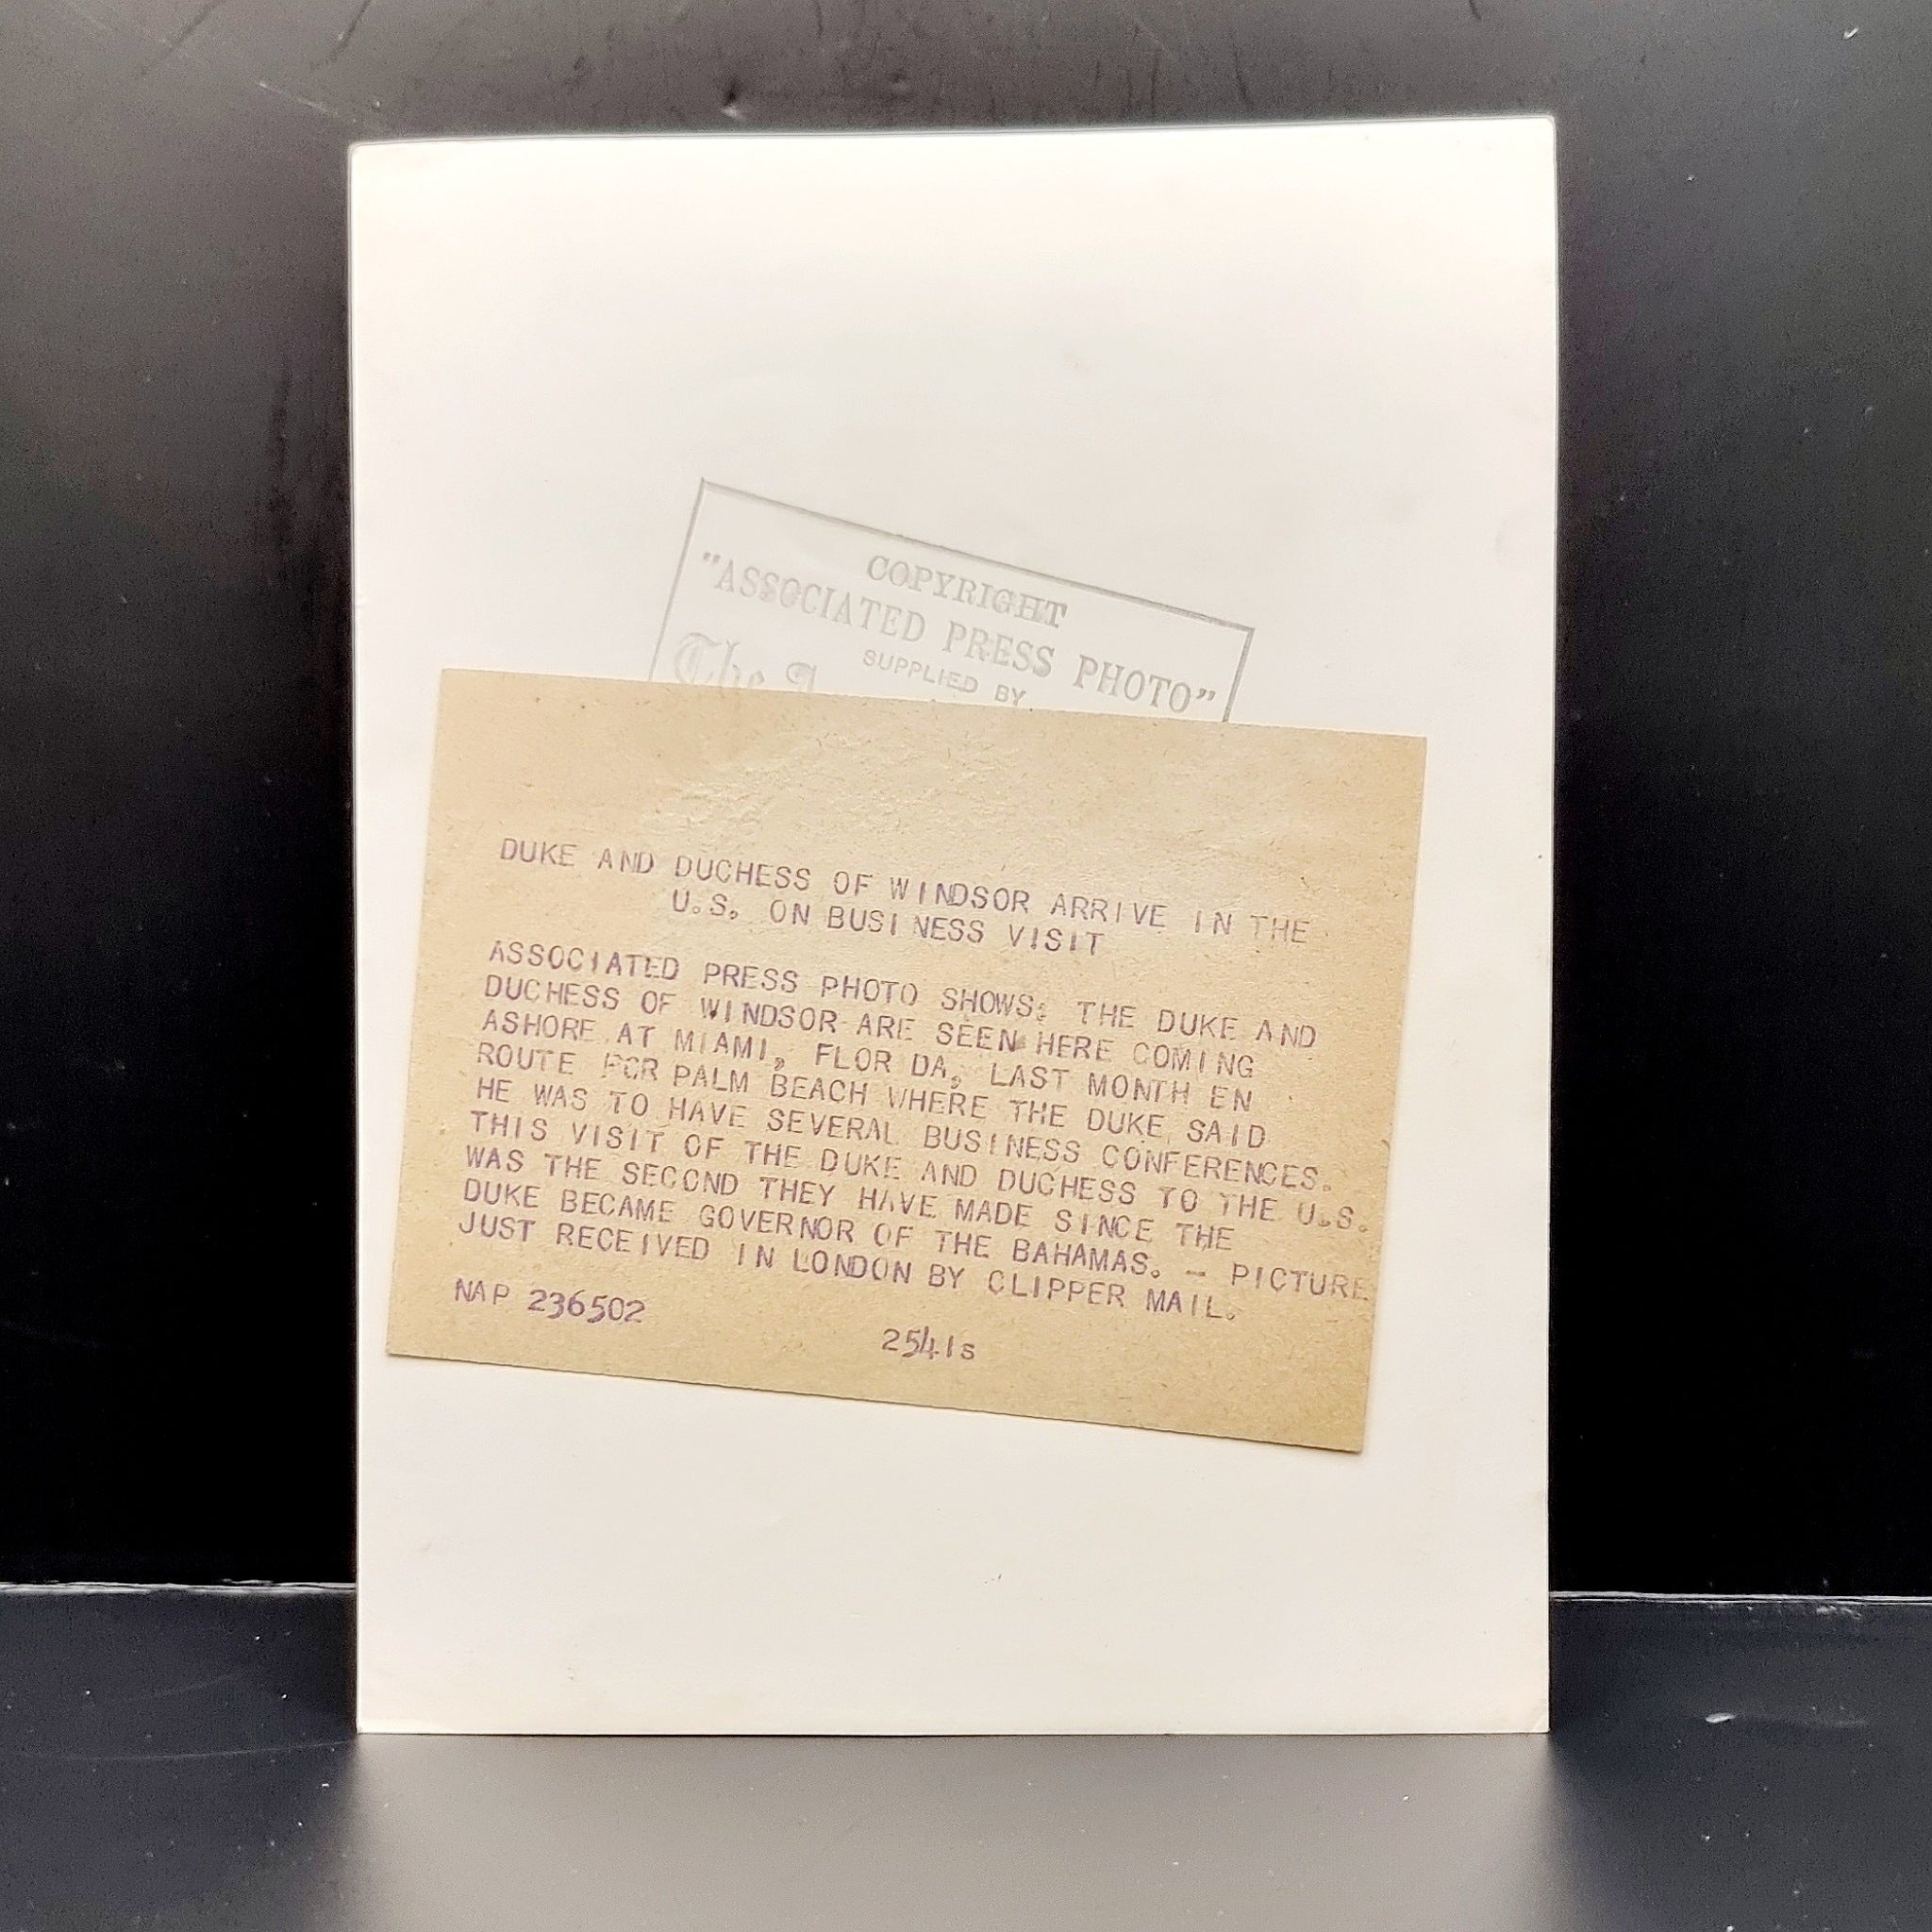 COPYRIGHT
"ASSOCIATED PRESS PHOTO"
SUPPLIED BY
The
DUKE AND DUCHESS OF WINDSOR ARRIVE IN THE
U.S. ON BUSINESS VISIT
ASSOCIATED PRESS PHOTO SHOWS: THE DUKE AND
DUCHESS OF WINDSOR ARE SEEN HERE COMING
ASHORE AT MIAMI, FLOR DA, LAST MONTH EN
ROUTE FOR PALM BEACH WHERE THE DUKE SAID
HE WAS TO HAVE SEVERAL BUSINESS CONFERENCES.
THIS VISIT OF THE DUKE AND DUCHESS TO THE U.S.
WAS THE SECOND THEY HAVE MADE SINCE THE
DUKE BECAME GOVERNOR OF THE BAHAMAS. - PICTURE
JUST RECEIVED IN LONDON BY CLIPPER MAIL.
NAP 236502
2541s